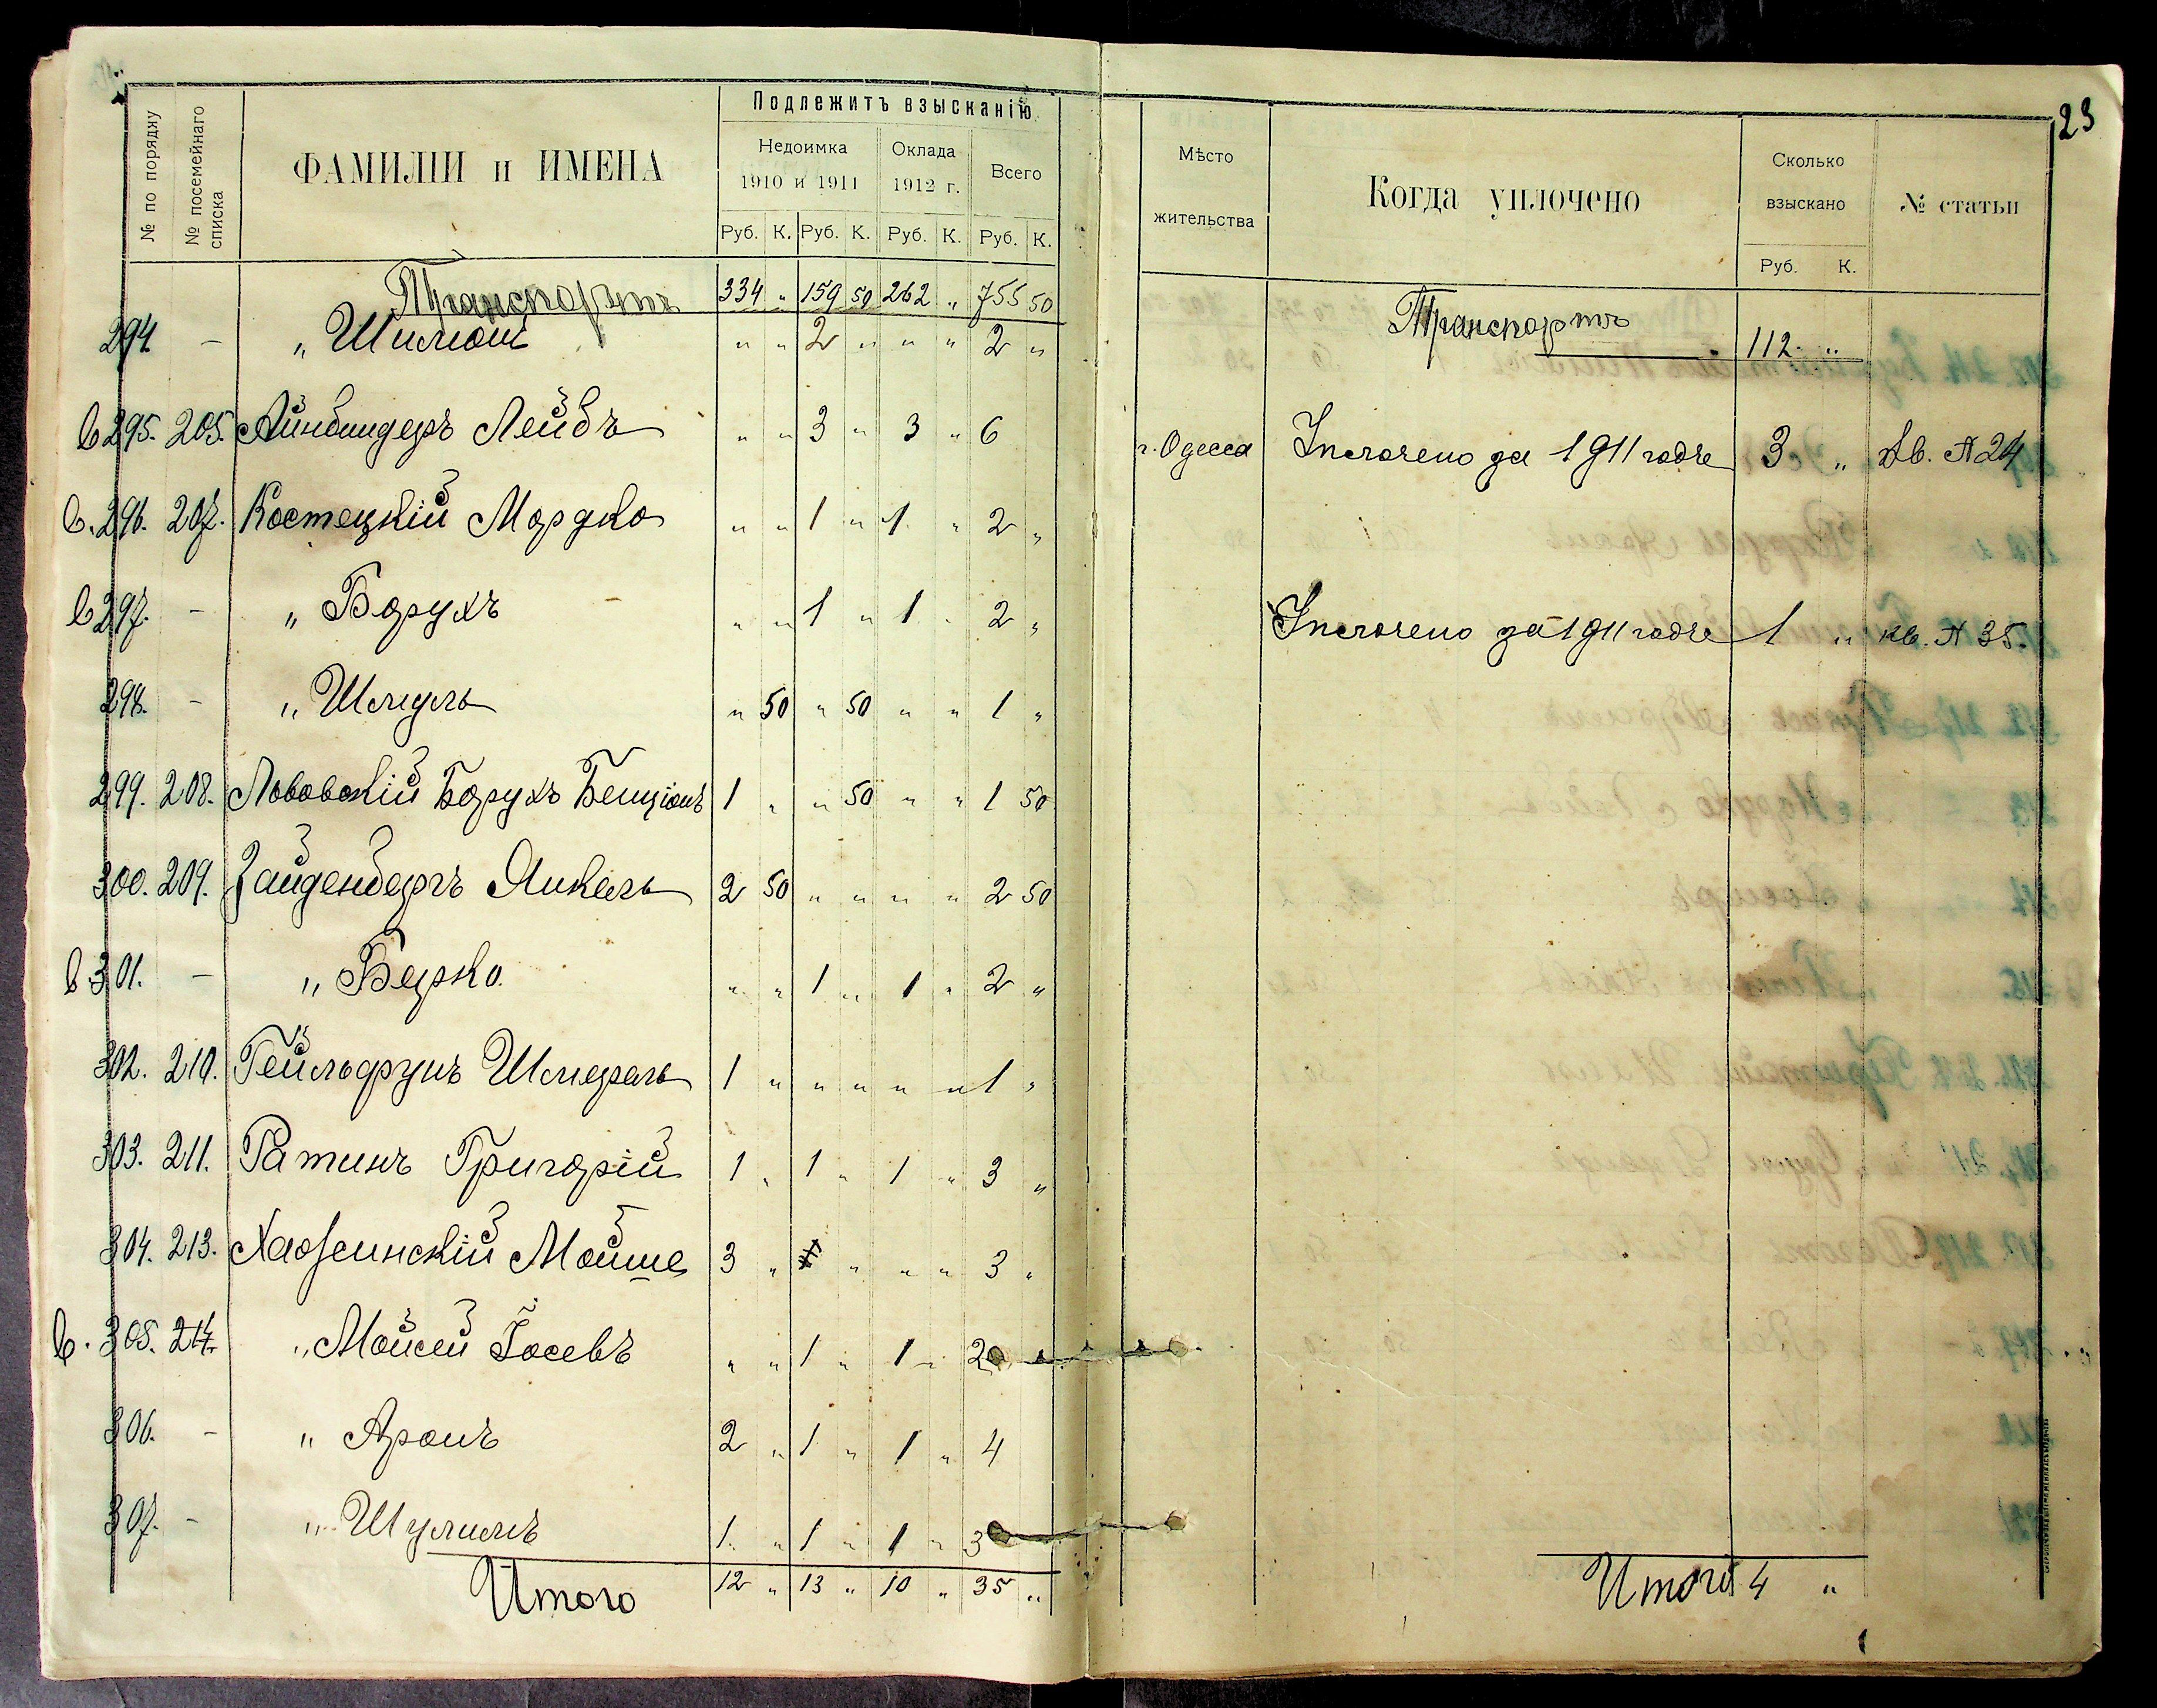 23
№ по порядку
№ посемейнаго списка
ФАМИЛІИ и ИМЕНА
Подлежитъ взысканію
Недоимка
1910 и 1911
Оклада
1912 г.
Всего
Руб. К. Руб. К. Руб. К. Руб. К.
Мѣсто
жительства
Когда уплочено
Сколько
взыскано
Руб. К.
№ статьи
Транспортъ 334 " 159 50 262 " 755 50
Транспортъ 112 "
294 - " Шимон " " 2 " " " 2 "
в 295. 205. Айнбиндеръ Лейбъ " " 3 " 3 " 6 г. Одесса Уплочено за 1911 годъ 3 " кв. № 24
в. 296. 207. Костецкій Мордко " " 1 " 1 " 2 "
в 297. - " Борухъ " " 1 " 1 " 2 " Уплочено за 1911 годъ 1 " кв. № 35.
298. - " Шмуль " 50 " 50 " " 1 "
299. 208. Борухъ Бенціонъ 1 " " 50 " " 1 50
300. 209. Зайденбергъ Янкель 2 50 " " " " 2 50
в 301. - " Берко. " " 1 " 1 " 2 "
302. 210. Шмерель 1 " " " " " 1 "
303. 211. Ратинъ Григорій 1 " 1 " 1 " 3 "
304. 213. Мойше 3 " " " " 3 "
в. 305. 214. " Мойсей Іосевъ " " 1 " 1 " 2
306. - " Аронъ 2 " 1 " 1 " 4
307. - " Шулимъ 1 " 1 " 1 " 3
Итого 12 " 13 " 10 " 35 "
Итого 4 "